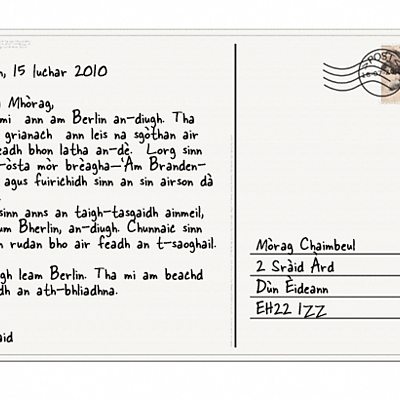 15 Iuchar 2010
Mhòrag,
mi ann am Berlin an-diugh. Tha
grianach ann leis na sgòthan air
bhon latha an-dè. Lorg sinn
mòr brèagha—'Am Branden-
agus fuirichidh sinn an sin airson dà
sinn anns an taigh-tasgaidh ainmeil,
Bherlin, an-diugh. Chunnaic sinn
rudan bho air feadh an t-saoghail.
leam Berlin. Tha mi am beachd
an ath-bhliadhna.
Mòrag Chaimbeul
2 Sràid Àrd
Dùn Èideann
EH22 1ZZ